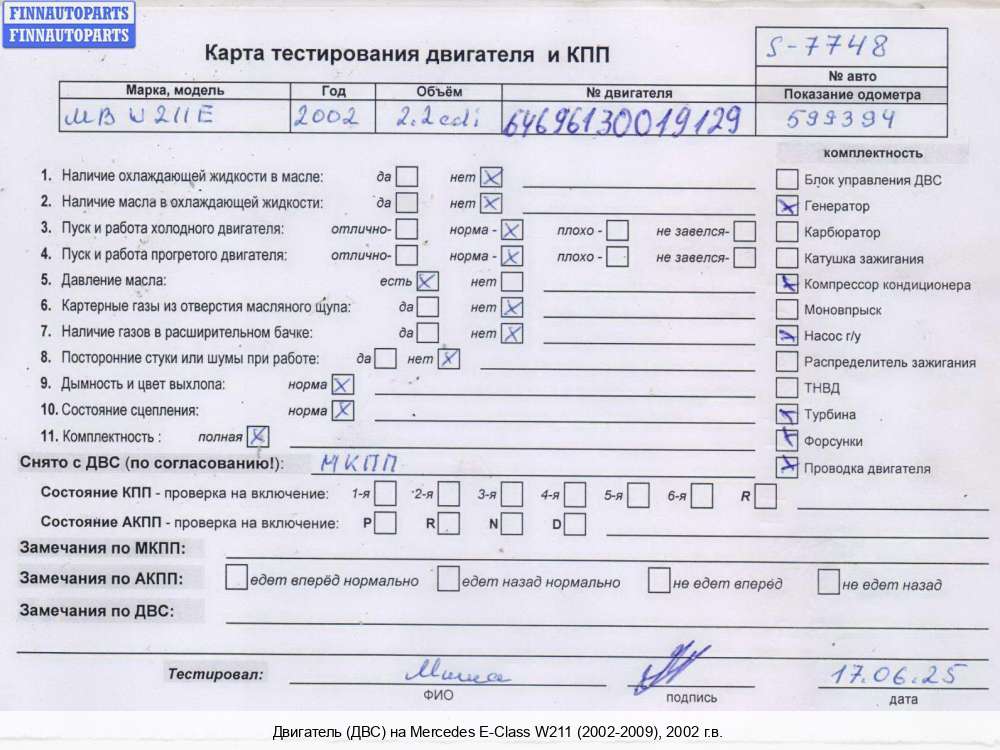 FINNAUTOPARTS
FINNAUTOPARTS
Карта тестирования двигателя и КПП
S-7748
№ авто
Марка, модель Год Объём № двигателя Показание одометра
MB W211E 2002 2.2cdi 64696130019129 599394
комплектность
1. Наличие охлаждающей жидкости в масле: да нет X
Блок управления ДВС
2. Наличие масла в охлаждающей жидкости: да нет X
X Генератор
3. Пуск и работа холодного двигателя: отлично- норма - X плохо - не завелся-
Карбюратор
4. Пуск и работа прогретого двигателя: отлично- норма - X плохо - не завелся-
Катушка зажигания
5. Давление масла: есть X нет
X Компрессор кондиционера
6. Картерные газы из отверстия масляного щупа: да нет X
Моновпрыск
7. Наличие газов в расширительном бачке: да нет X
X Насос г/у
8. Посторонние стуки или шумы при работе: да нет X
Распределитель зажигания
9. Дымность и цвет выхлопа: норма X
ТНВД
10. Состояние сцепления: норма X
X Турбина
11. Комплектность : полная X
X Форсунки
Снято с ДВС (по согласованию!): МКПП
X Проводка двигателя
Состояние КПП - проверка на включение: 1-я 2-я 3-я 4-я 5-я 6-я R
Состояние АКПП - проверка на включение: P R N D
Замечания по МКПП:
Замечания по АКПП: едет вперёд нормально едет назад нормально не едет вперёд не едет назад
Замечания по ДВС:
Тестировал: Миша 17.06.25
ФИО подпись дата
Двигатель (ДВС) на Mercedes E-Class W211 (2002-2009), 2002 г.в.